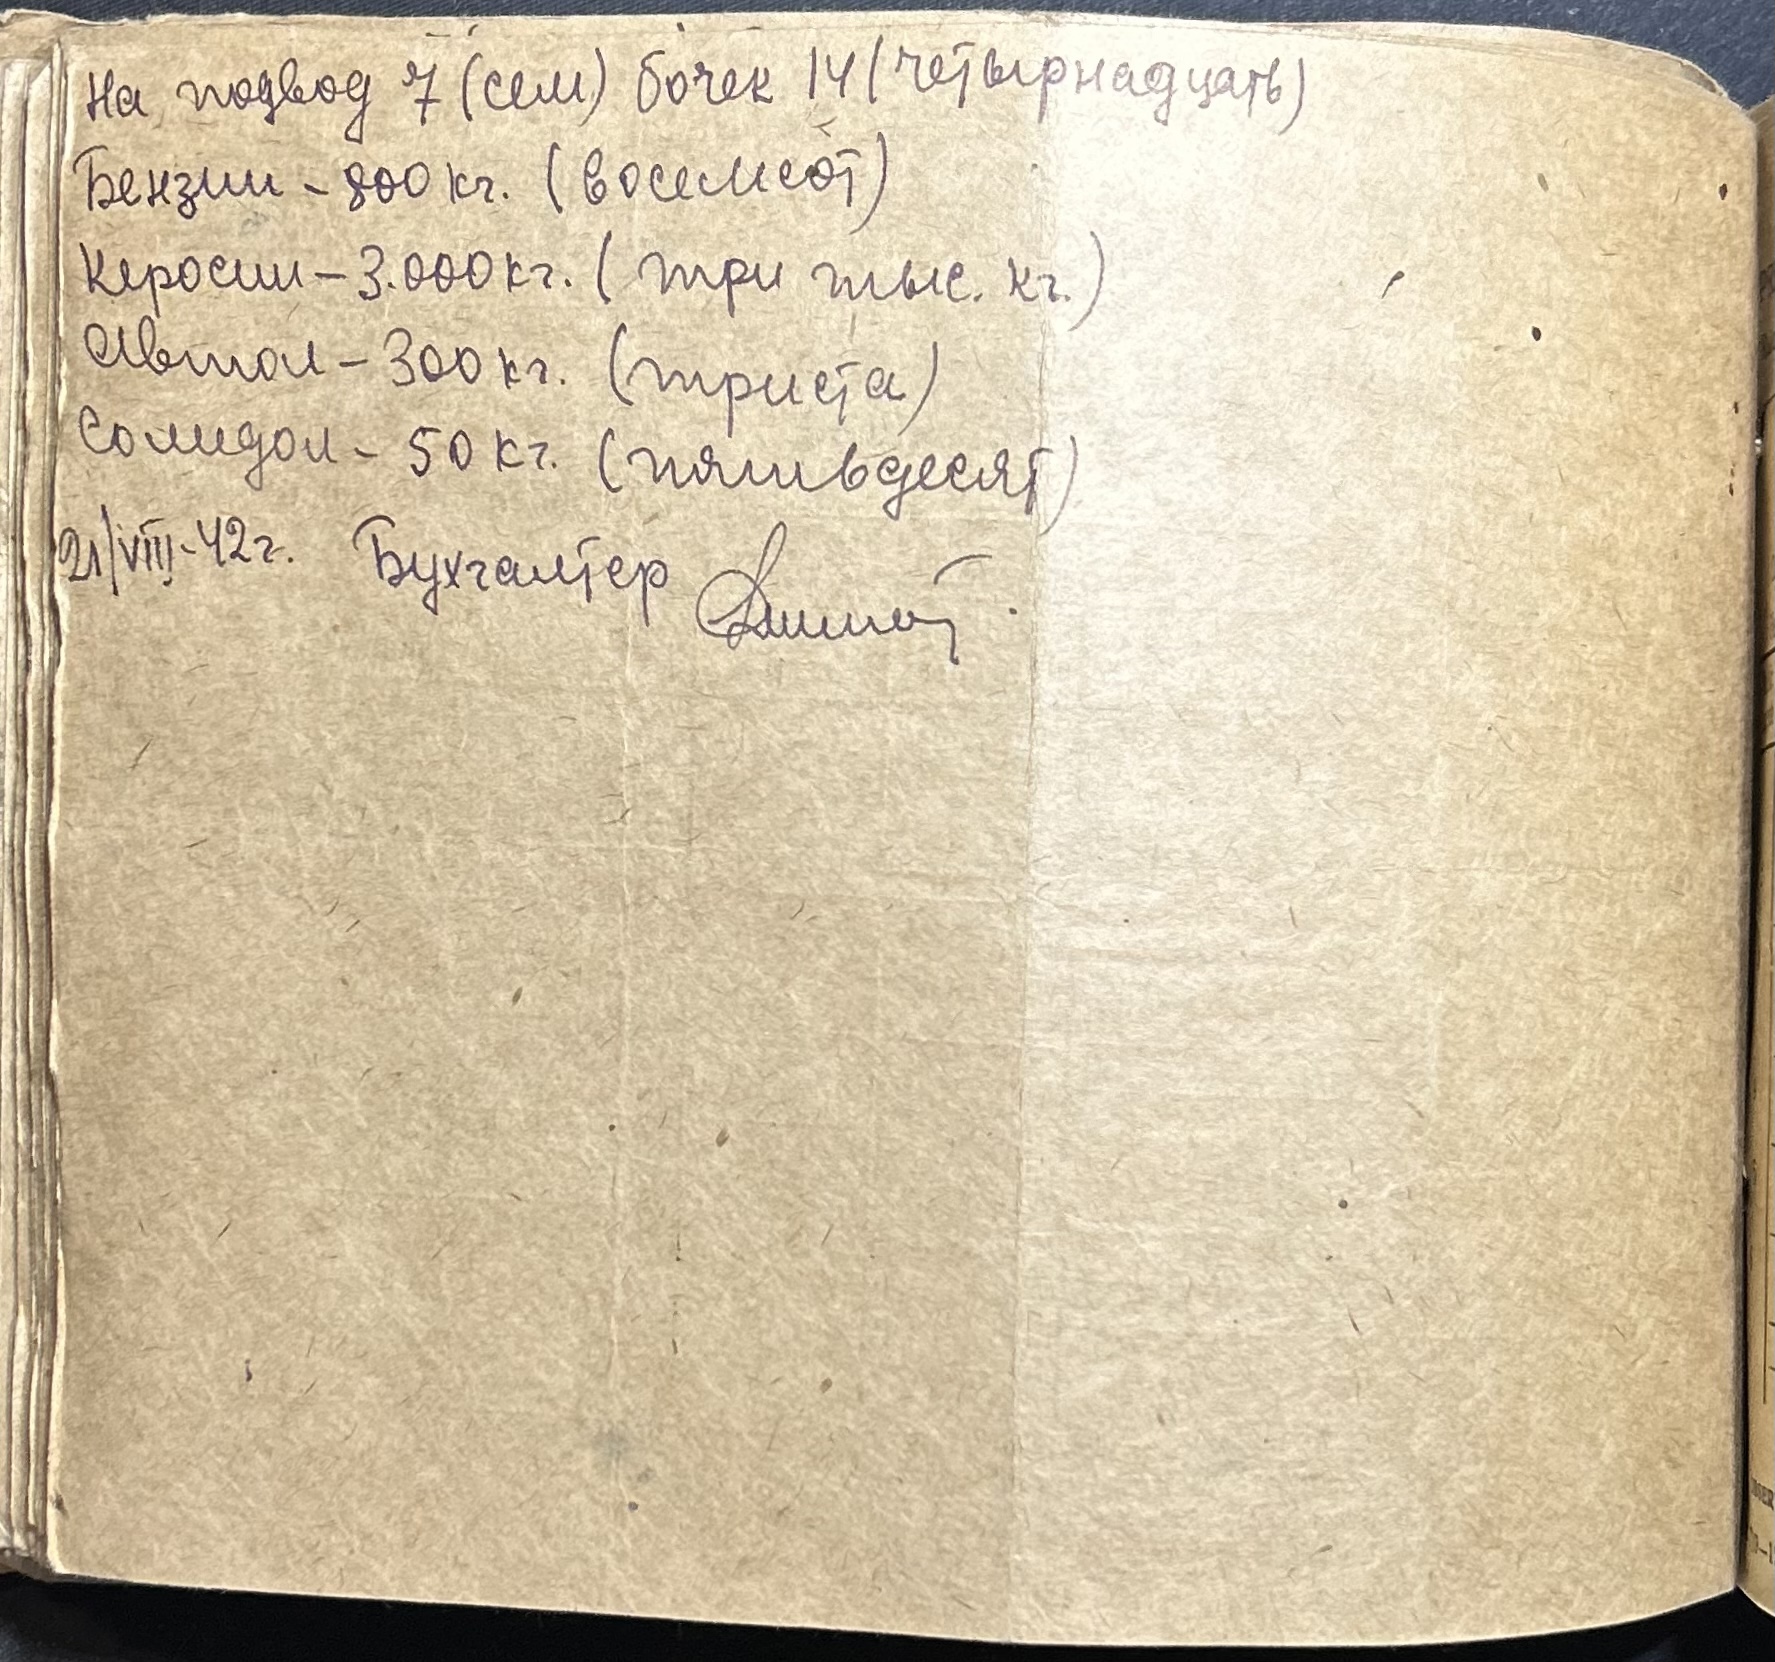 На подвод 7 (сем) бочек 14 (четырнадцать)
Бензин - 800 кг. (восемсот)
Керосин - 3.000 кг. (три тыс. кг.)
Автол - 300 кг. (триста)
Солидол - 50 кг. (пятьдесят)
21/VIII-42г. Бухгалтер